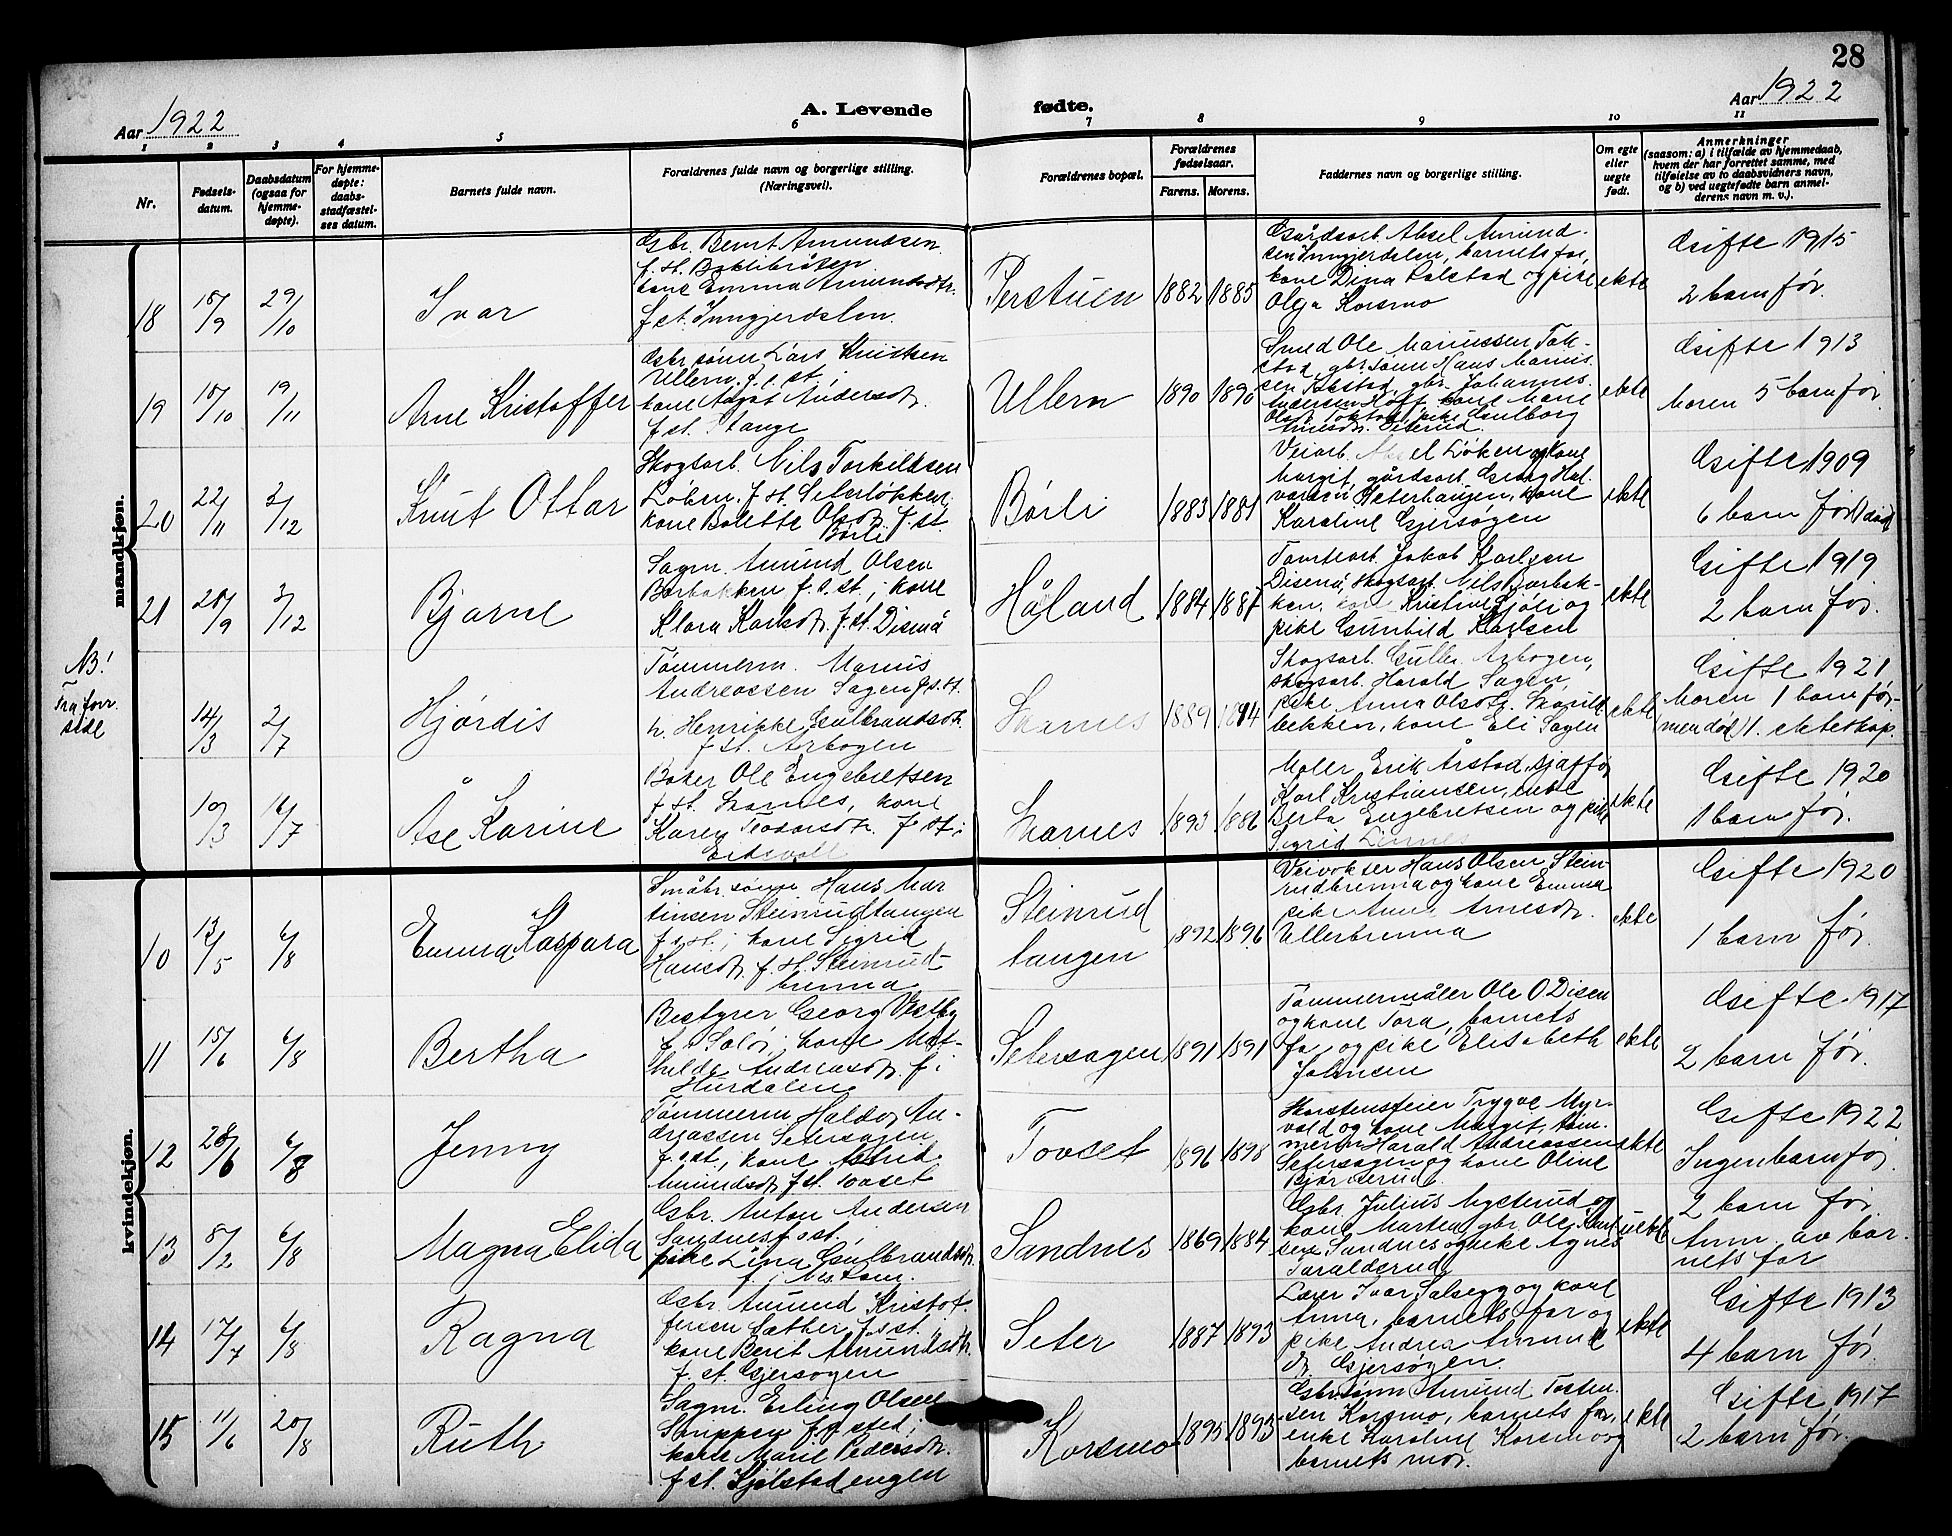 28
Aar 1922
A. Levende fødte.
Aar 1922
1 2 3 4 5 6 7 8 9 10 11
Nr.
Fødsels-
datum.
Daabsdatum
(ogsaa for
hjemme-
døpte).
For hjemme-
døpte:
daabs-
stadfæstel-
ses datum.
Barnets fulde navn.
Forældrenes fulde navn og borgerlige stilling.
(Næringsvei).
Forældrenes bopæl.
Forældrenes
fødselsaar.
Farens. Morens.
Faddernes navn og borgerlige stilling.
Om egte
eller
uegte
født.
Anmerkninger
(saasom: a) i tilfælde av hjemmedaab,
hvem der har forrettet samme, med
tilføielse av to daabsvidners navn,
og b) ved uegtefødte barn anmel-
derens navn m. v.).
mandkjøn.
18
29/10
Ivar
Gbr. Bernt Amundsen
f. st.
kone Emma Amundsdtr.
f. st. Inngjerdslen.
Perstuen
1882 1885
Gårdsarb. Aksel Amund-
sen Inngjerdslen, barnets far,
kone Dina og pike
Olga Korsmo
ekte
Gifte 1915
2 barn før.
19
19/11
Arne Kristoffer
Gbr sønn Lars Knutsen
Ullern f. s. st.;
kone Andersdtr.
f. st. Stange
Ullern
1890 1890
Smed Ole Mariussen Tok-
stad, gbr. sønn Hans Marius-
sen Tokstad, gbr. Johannes
Andersen Hoff kone Marie
pike Gulborg
ekte
Gifte 1913
Moren 5 barn før
20
22/11
2/12
Knut Ottar
Skogsarb. Nils Torkildsen
f. st. Seterløkken
kone Bolette Olsdtr. f. st.
Børli
Børli
1883 1881
Veiarb. Aksel Løken og kone
Margit, gårdsarb. Georg Hal-
varsen Seterhaugen, kone
Karoline Gjersøgen
ekte
Gifte 1909
6 barn før (1 død)
21
3/12
Bjarne
Sagm. Amund Olsen
Borbakken f. s. st.; kone
Klara Karlsdtr. f. st. Disenå
Håland
1884 1887
Tomtearb. Jakob Karlsen
Disenå, skogsarb. Nils Borbak-
ken, kone Kristine og
pike Gunhild Karlsen
ekte
Gifte 1919
2 barn før.
NB!
Fra forr.
side
14/3
2/7
Hjørdis
Tømmerm. Marius
Andreassen Sagen f. s. st.
h. Henrikke Gulbrandsdtr.
f. st. Arbogen
Skarnes
1889
Skogsarb. Arbogen,
skogsarb. Harald Sagen
pike Anna Olsdtr.
bekken, kone Eli Sagen
ekte
Gifte 1921
Moren 1 barn før
1. ekteskap.
10/3
16/7
Åse Karine
Baker Ole Engebretsen
f. st. Skarnes, kone
Karen Teodorsdtr. f. st.
Eidsvoll
Skarnes
1893 1886
Maler Erik Årstad, sjåffør
Karl Kristiansen, enke
Berta Engebretsen og pike
Sigrid
ekte
Gifte 1920
1 barn før.
kvindekjøn.
10
13/5
6/8
Emma Kaspara
Småbr. sønn Hans Mar-
tinsen Steinrudtangen
f. s. st.; kone Sigrid
Hansdtr. f. st. Steinrud-
brenna
Steinrud
tangen
1892 1896
Veivokter Hans Olsen Stein-
rudbrenna og kone Emma
pike Anne Arnesdtr.
Ullerbrenna
ekte
Gifte 1920
1 barn før.
11
15/6
6/8
Bertha
Bestyrer Georg Vestby
f. i Solør; kone Mat-
hilde Andreasdtr. f. i
Hurdalen
Setersagen
1891 1891
Tømmermåler Ole O Disen
og kone Tora, barnets
far og pike Elisabeth
Johnsen
ekte
Gifte 1917
2 barn før.
12
28/6
6/8
Jenny
Tømmerm Haldor An-
dreassen Setersagen
f. s. st.; kone Astrid
Amundsdtr. f. st. Tovset
Tovset
1896 1898
Skorstensfeier Trygve Myr-
vold og kone Margit, tøm-
merm Harald Andreassen
Setersagen og kone Oline
Bjørnerud
ekte
Gifte 1922
Ingen barn før.
13
8/2
6/8
Magna Elida
Gbr. Anton Andersen
Sandnes f. s. st.;
pike Lina Gulbrandsdtr.
f. i
Sandnes
1869 1884
Gbr. Julius Mysterud og
kone Marthea gbr. Ole Knut-
sen Sandnes og pike Agnes
Taralderud
uekte
2 barn før
Anm. av bar-
nets far
14
17/7
6/8
Ragna
Gbr. Amund Kristof-
fersen Sæther f. s. st.
kone Berit Amundsdtr.
f. st. Gjersøgen
Seter
1887 1893
Lærer Ivar Salsegg og kone
Anna, barnets far og
pike Andrea Amunds
dtr. Gjersøgen.
ekte
Gifte 1913
4 barn før
15
11/6
20/8
Ruth
Sagm. Erling Olsen
f. s. sted;
kone Marie Pedersdtr.
f. st. Kjølstadengen
Korsmo
1895 1893
Gbr sønn Amund Tosten-
sen Korsmo, barnets far,
enke Karoline Korsmo og
barnets mor.
ekte
Gifte 1917
2 barn før.